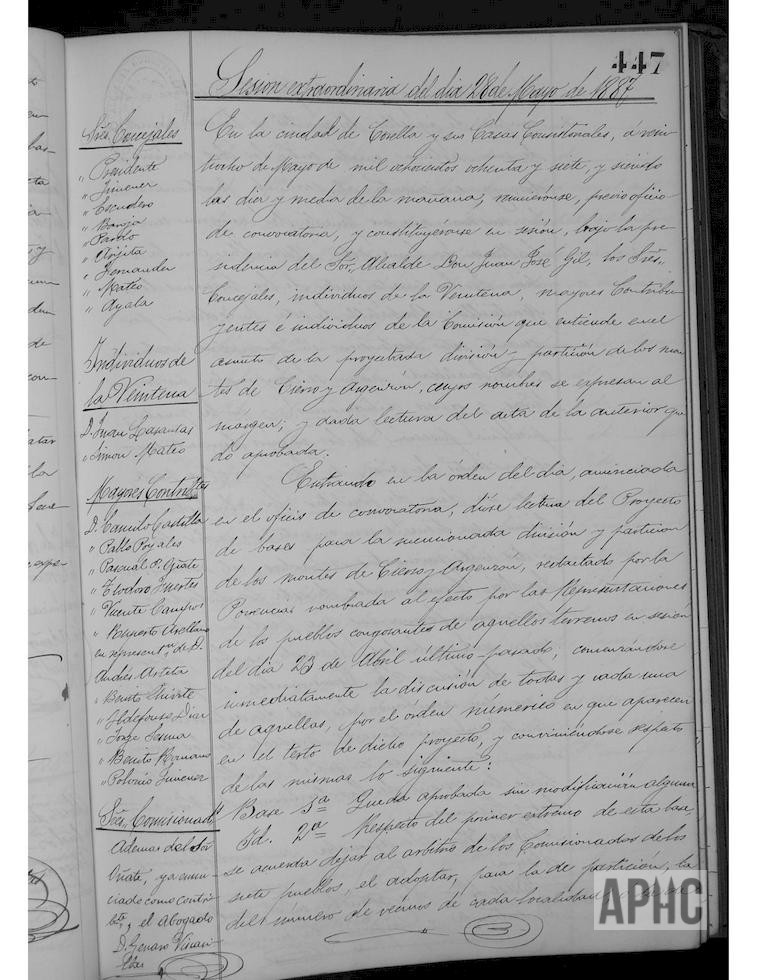 447
Sesion extraordinaria del dia 28 de Mayo de 1887
Sres. Concejales
" Presidente
" Jimenez
" Escudero
" Pardo
" Arijita
" Fernandez
" Mateo
" Ayala
Individuos de
la Veintena
D. Juan
" Simon Mateo
Mayores Contribtes
D. Camilo Castilla
" Pablo Poyales
" Pascual P. Oñate
" Teodoro Fuertes
" Vicente Campos
" Ruperto Arellano
en representn. de D.
Andrés Arteta
" Benito
" Ildefonso Diaz
" Jorge Sesma
" Benito Romano
" Polonio Jimenez
Sres. Comisionads
Ademas del Sor
Oñate, ya enun-
ciado como contri-
bte, y el Abogado
D. Genaro
En la ciudad de Corella y sus Casas Consistoriales, á vein-
tiocho de Mayo de mil ochocientos ochenta y siete, y siendo
las diez y media de la mañana, reuniéronse, previo oficio
de convocatoria, y constituyéronse en sesión, bajo la pre-
sidencia del Sor. Alcalde Don Juan José Gil, los Sres.
Concejales, individuos de la Veintena, mayores Contribu-
yentes é individuos de la Comisión que entiende en el
asunto de la proyectada división y partición de los mon-
tes de Cierzo y Argenzón, cuyos nombres se expresan al
margen; y dada lectura del acta de la anterior que-
dó aprobada.
Entrando en la órden del dia, anunciada
en el oficio de convocatoria, dióse lectura del Proyecto
de bases para la mencionada división y particion
de los montes de Cierzo y Argenzon, redactado por la
Ponencia nombrada al efecto por las Representaciones
de los pueblos congozantes de aquellos terrenos en sesión
del dia 23 de Abril último pasado, comenzandose
inmediatamente la discusión de todas y cada una
de aquellas, por el órden númerico en que aparecen
en el texto de dicho proyecto, y conviniéndose respecto
de las mismas lo siguiente:
Base 1ª Queda aprobada sin modificación alguna
Id. 2ª Respecto del primer extremo de esta base,
se acuerda dejar al arbitrio de los Comisionados de los
siete pueblos, el adoptar, para la de partición, la
del número de vecinos de cada localidad
APHC